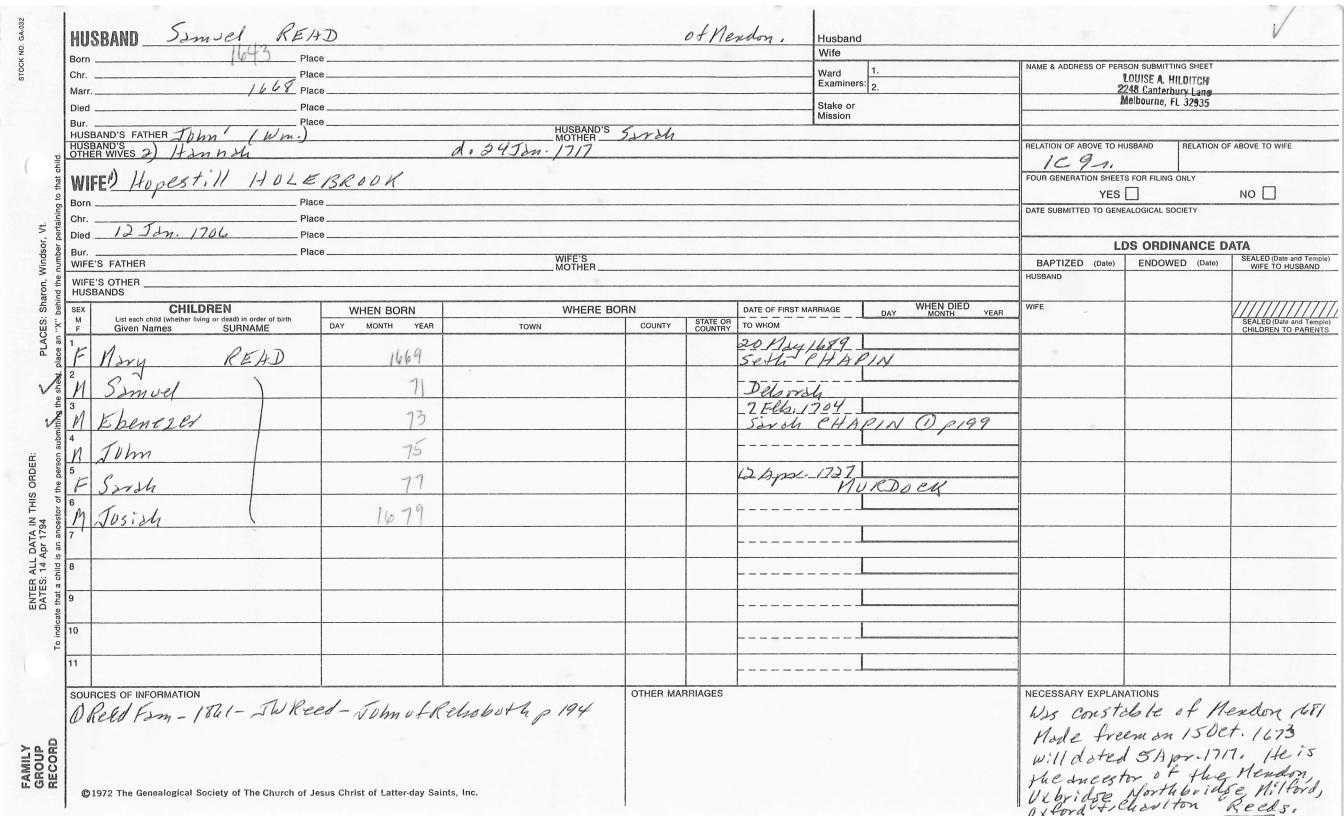 STOCK NO. GA-032
HUSBAND Samuel READ of Mendon.
Born 1643 Place
Chr. Place
Marr. 1668 Place
Died Place
Bur. Place
HUSBAND'S FATHER John (Wm.) HUSBAND'S MOTHER Sarah
HUSBAND'S OTHER WIVES 2) Hannah d. 24 Jan. 1717
WIFE 1) Hopestill HOLEBROOK
Born Place
Chr. Place
Died 12 Jan. 1706 Place
Bur. Place
WIFE'S FATHER WIFE'S MOTHER
WIFE'S OTHER HUSBANDS
Husband
Wife
Ward Examiners: 1.
2.
Stake or Mission
NAME & ADDRESS OF PERSON SUBMITTING SHEET
LOUISE A. HILDITCH
2248 Canterbury Lane
Melbourne, FL 32935
RELATION OF ABOVE TO HUSBAND RELATION OF ABOVE TO WIFE
1c 9r.
FOUR GENERATION SHEETS FOR FILING ONLY
YES NO
DATE SUBMITTED TO GENEALOGICAL SOCIETY
LDS ORDINANCE DATA
BAPTIZED (Date) ENDOWED (Date) SEALED (Date and Temple) WIFE TO HUSBAND
HUSBAND
WIFE
SEALED (Date and Temple) CHILDREN TO PARENTS
SEX M F
CHILDREN
List each child (whether living or dead) in order of birth
Given Names SURNAME
WHEN BORN
DAY MONTH YEAR
WHERE BORN
TOWN COUNTY STATE OR COUNTRY
DATE OF FIRST MARRIAGE
TO WHOM
WHEN DIED
DAY MONTH YEAR
1 F Mary READ 1669 20 May 1689
Seth CHAPIN
2 M Samuel 71 Deborah
3 M Ebenezer 73 7 Feb. 1704
Sarah CHAPIN ① p199
4 M John 75
5 F Sarah 77 12 Apr. 1727
MURDOCK
6 M Josiah 1679
7
8
9
10
11
SOURCES OF INFORMATION
① Reed Fam - 1861 - JW Reed - John of Rehoboth p 194
OTHER MARRIAGES
NECESSARY EXPLANATIONS
Was constable of Mendon 1681
Made freeman 15 Oct. 1673
will dated 5 Apr. 1717. He is
the ancestor of the Mendon,
Uxbridge, Northbridge, Milford,
Oxford + Charlton Reeds.
©1972 The Genealogical Society of The Church of Jesus Christ of Latter-day Saints, Inc.
FAMILY GROUP RECORD
ENTER ALL DATA IN THIS ORDER:
DATES: 14 Apr 1794 PLACES: Sharon, Windsor, Vt.
To indicate that a child is an ancestor of the person submitting the sheet, place an "X" behind the number pertaining to that child.